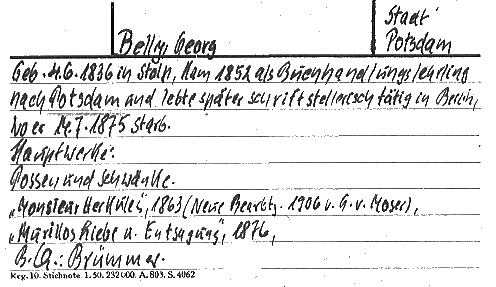 Stadt
Belly, Georg Potsdam
Geb. 4.6.1836 in Stolp, kam 1852 als Buchhandlungslehrling
nach Potsdam und lebte später schriftstellerisch tätig in Berlin,
wo er 14.7.1875 starb.
Hauptwerke:
Possen und Schwänke.
„Monsieur Herkules", 1863 (Neue Bearbtg. 1906 v. G. v. Moser),
„Murillos Liebe u. Entsagung", 1876,
B.Q.: Brümmer.
Reg. 10. Stichnote. 1. 50. 232 000. A. 803. S. 4062